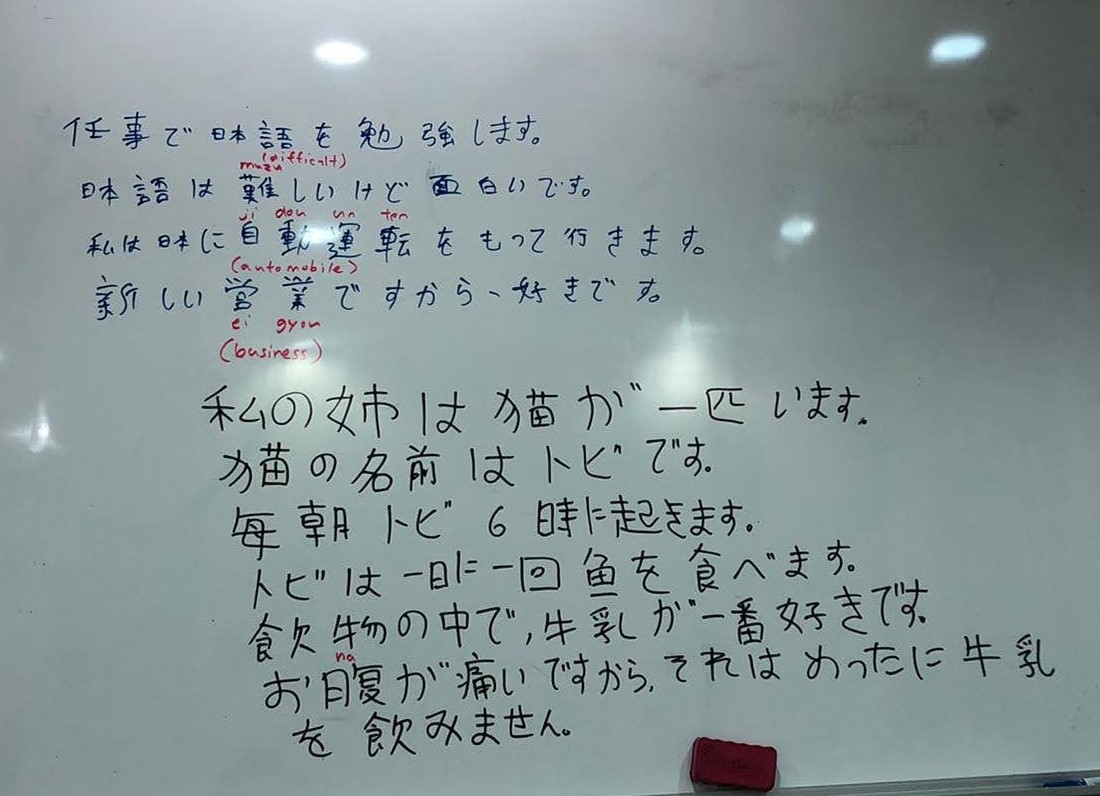 任事で日本語を勉強します。
muzu (difficalt)
日本語は難しいけど面白いです。
ji dou un ten
私は日本に自動運転をもって行きます。
(automobile)
新しい営業ですから、好きです。
ei gyou
(business)
私の姉は猫が一匹います。
猫の名前はトビです。
毎朝トビ6時に起きます。
トビは一日に一回魚を食べます。
飲物の中で,牛乳が一番好きです。
na
お腹が痛いですから,それはめったに牛乳
を飲みません。